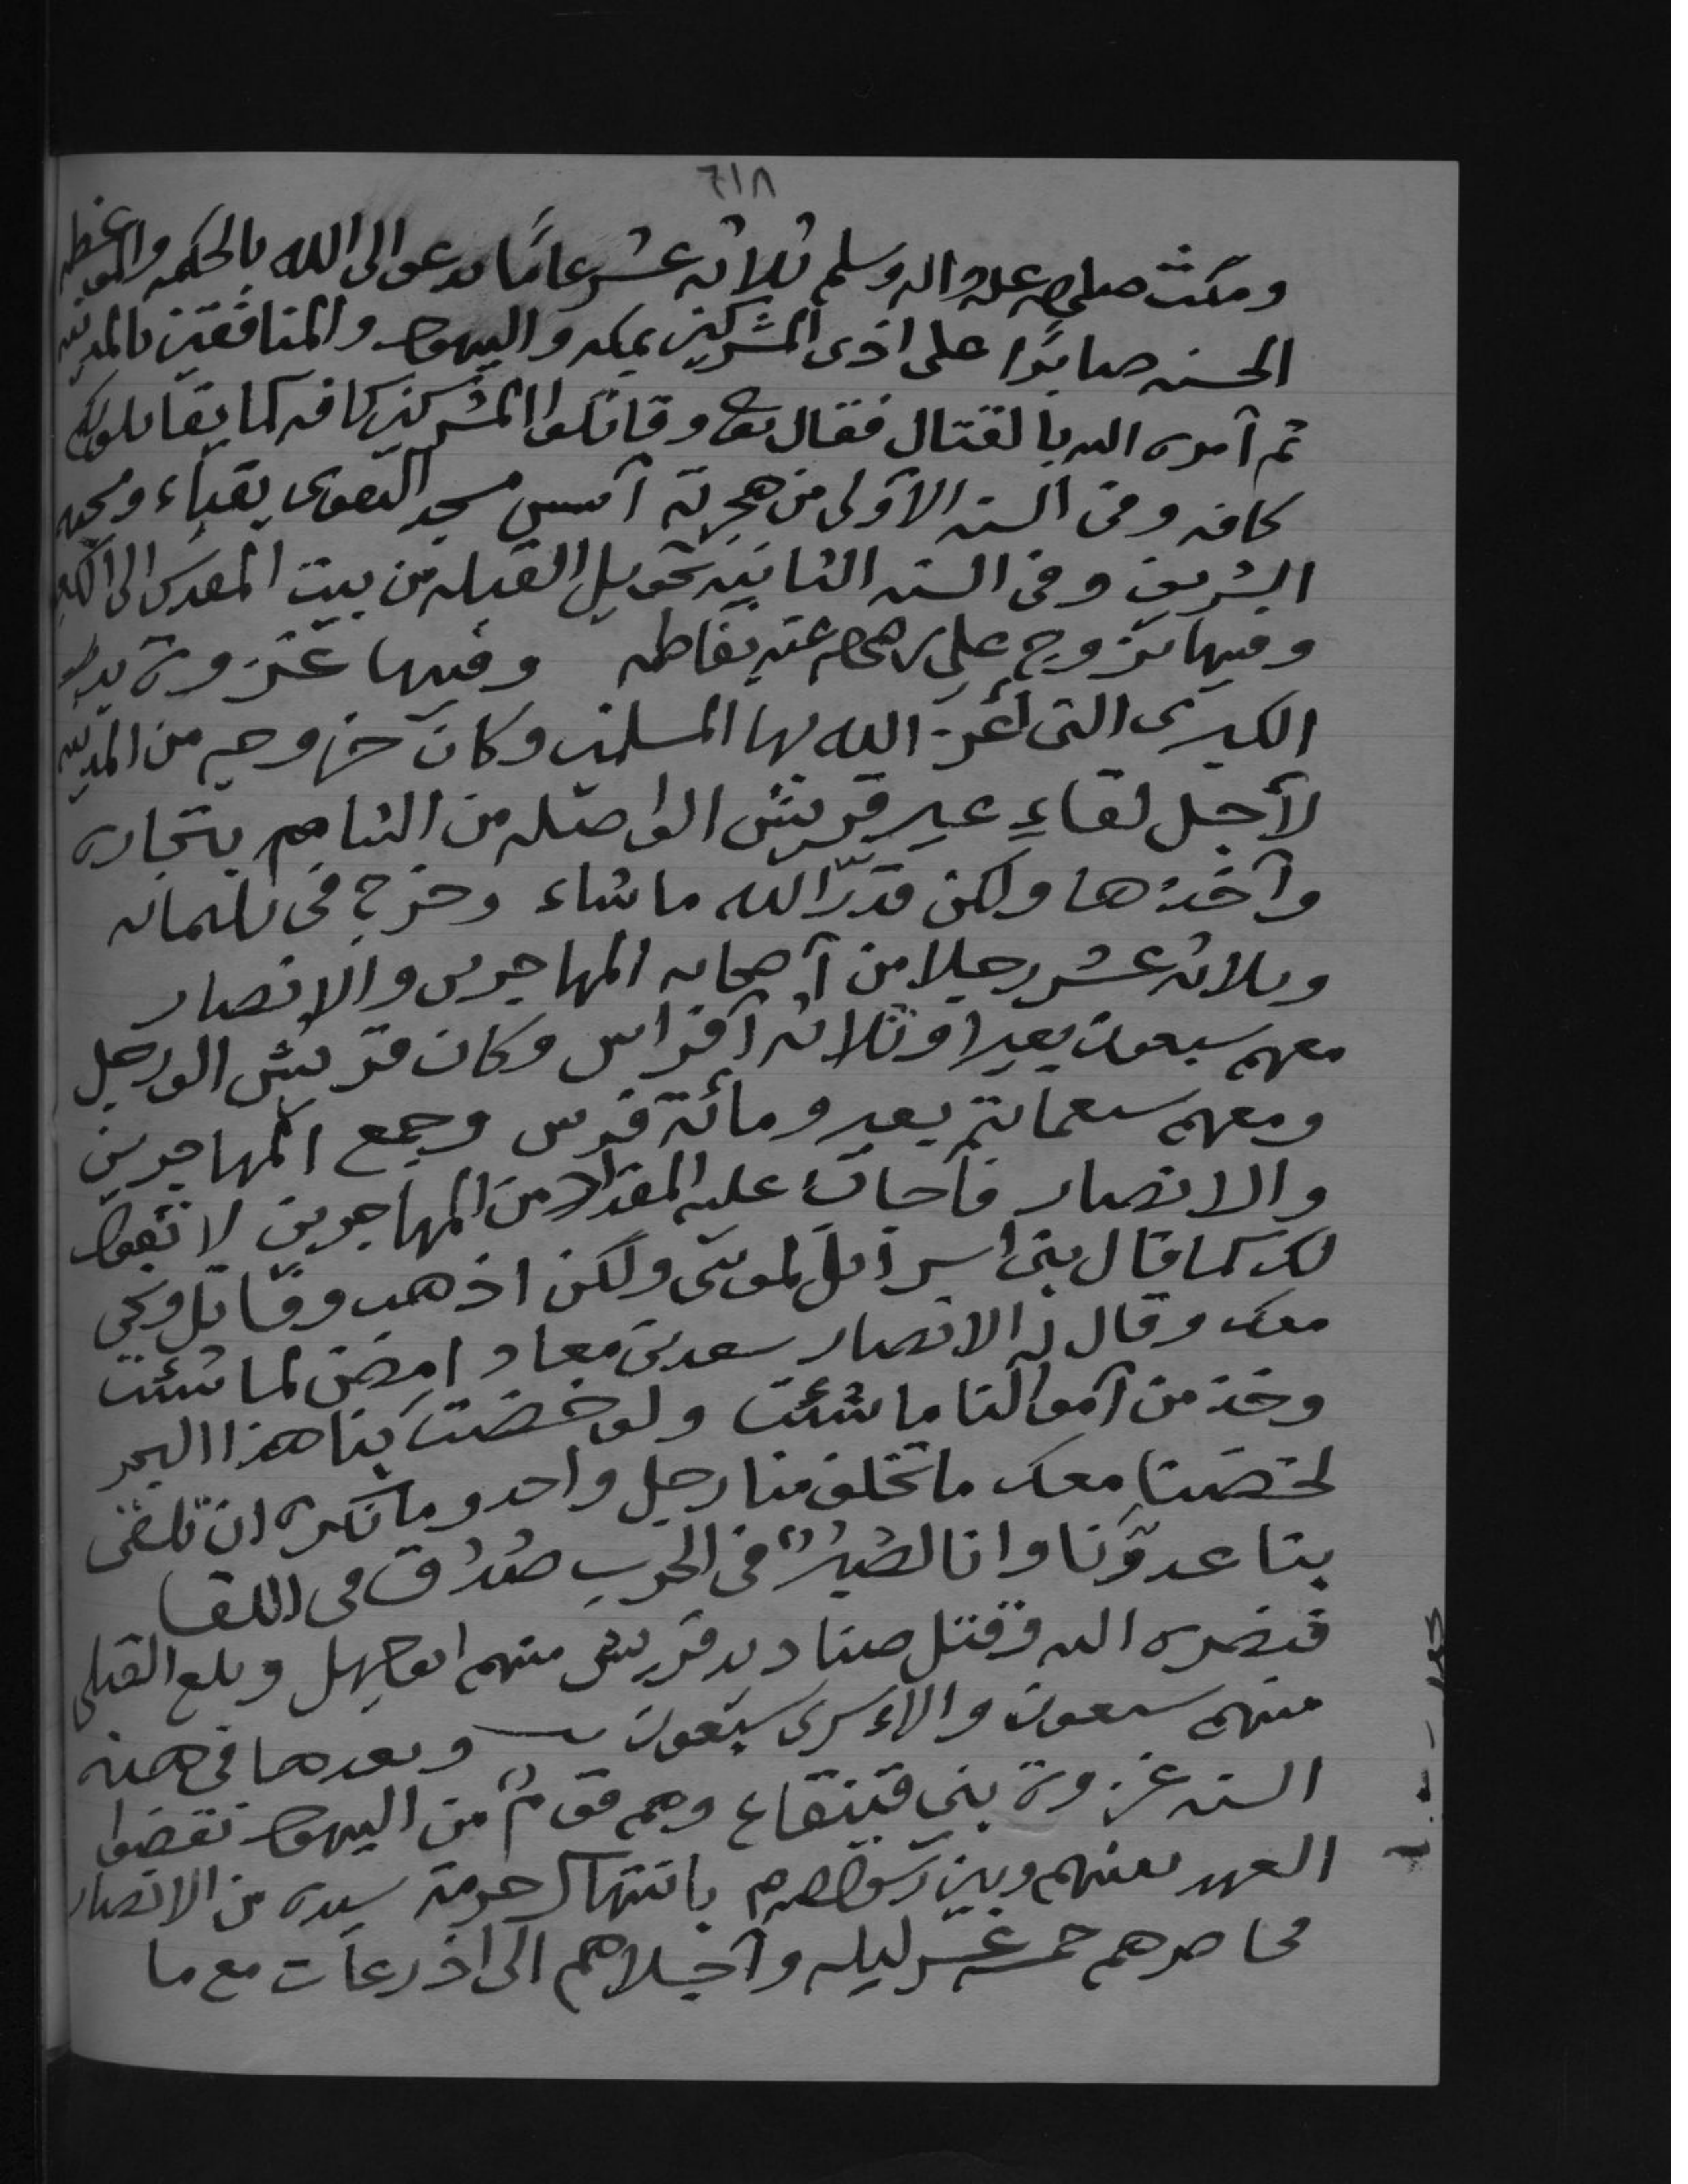 ٦١٨
ومكث صلى الله عليه واله وسلم ثلاثه عشر عامًا يدعو الى الله بالحكمه والموعظه
الحسنه صابرًا على اذى المشركين بمكه واليهود والمنافقين بالمدينه
ثم أمره الله بالقتال فقال تعا وقاتلوا المشركين كافه كما يقاتلونكم
كافه وفى السنه الأولى من هجرته أسس مسجد التقوى بقباء ومسجده
الشريف وفى السنه الثانيه تحويل القبله من بيت المقدس الى الكعبه
وفيها تزوج علي رضي الله عنه بفاطمه وفيها غزوة بدر
الكبرى التى أعز الله بها المسلمين وكان خروجه من المدينه
لأجل لقاءِ عير قريش الواصله من الشام بتجاره
وأخذها ولكن قدّر الله ما شاء وخرج فى ثلثمائه
وثلاثه عشر رجلا من أصحابه المهاجرين والانصار
معهم سبعون بعيرا وثلاثه أفراس وكان قريش الف رجل
ومعهم سبعمائة بعير ومائة فرس وجمع المهاجرين
والانصار فأجاب عليه المقداد من المهاجرين لا نقول
لك كما قال بنى اسرائيل لموسى ولكن اذهب وقاتل ونحن
معك وقال له الانصار سعد بن معاد امض لما شئت
وخذ من أموالنا ما شئت ولو خضت بنا هذا البحر
لخضنا معك ما تخلف منا رجل واحد وما نكره ان تلقى
بنا عدوّنا وانا لصُبُرٌ فى الحرب صُدُق فى اللقا
فنصره الله وقتل صناديد قريش منهم ابو جهل وبلغ القتلى
منهم سبعون والأسرى سبعون وبعدها فى هذه
السنه غزوة بنى قينقاع وهم قومٌ من اليهود نقضوا
العهد بينهم وبين رسول الله م بانتهاك حرمة سيده من الانصار
فحاصرهم خمسه عشر ليله وأجلاهم الى اذرعات مع ما